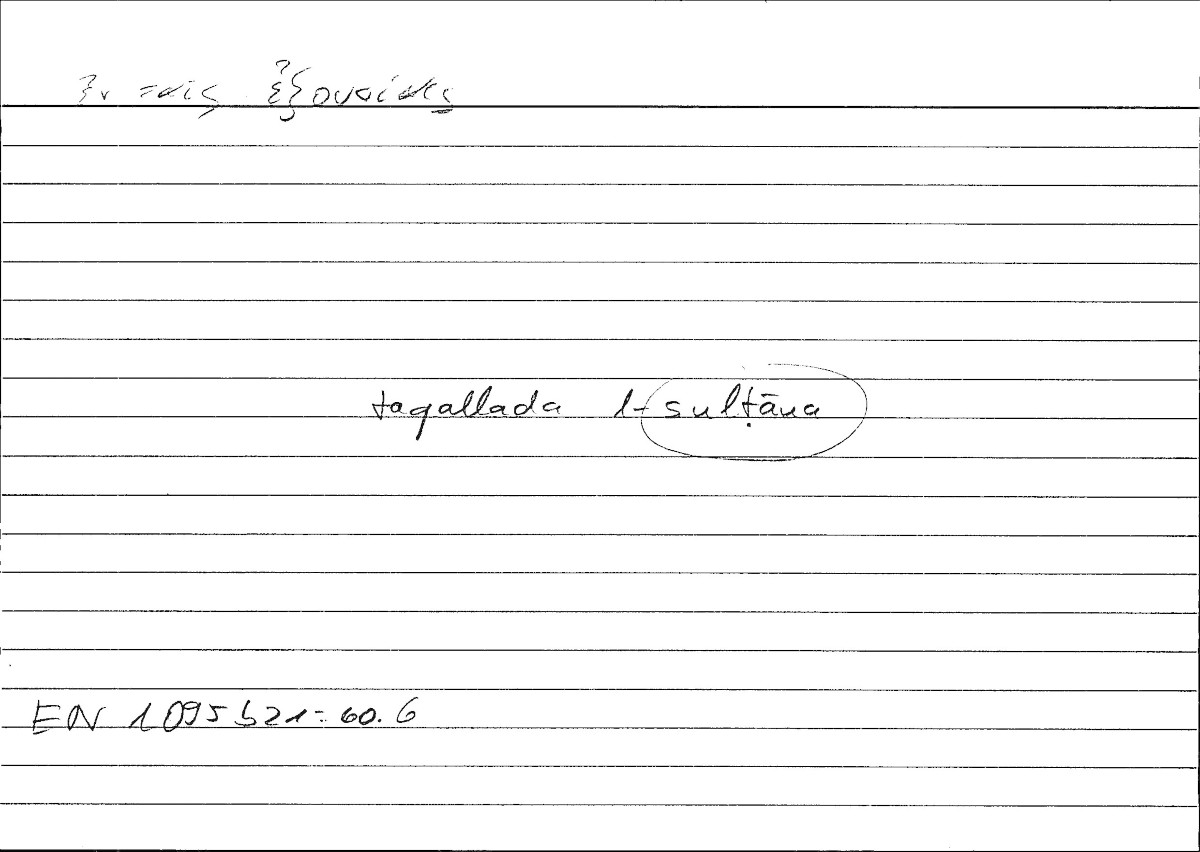 ἐν ταῖς ἐξουσίαις
taqallada l-sulṭāna
EN 1095b21 = 60.6